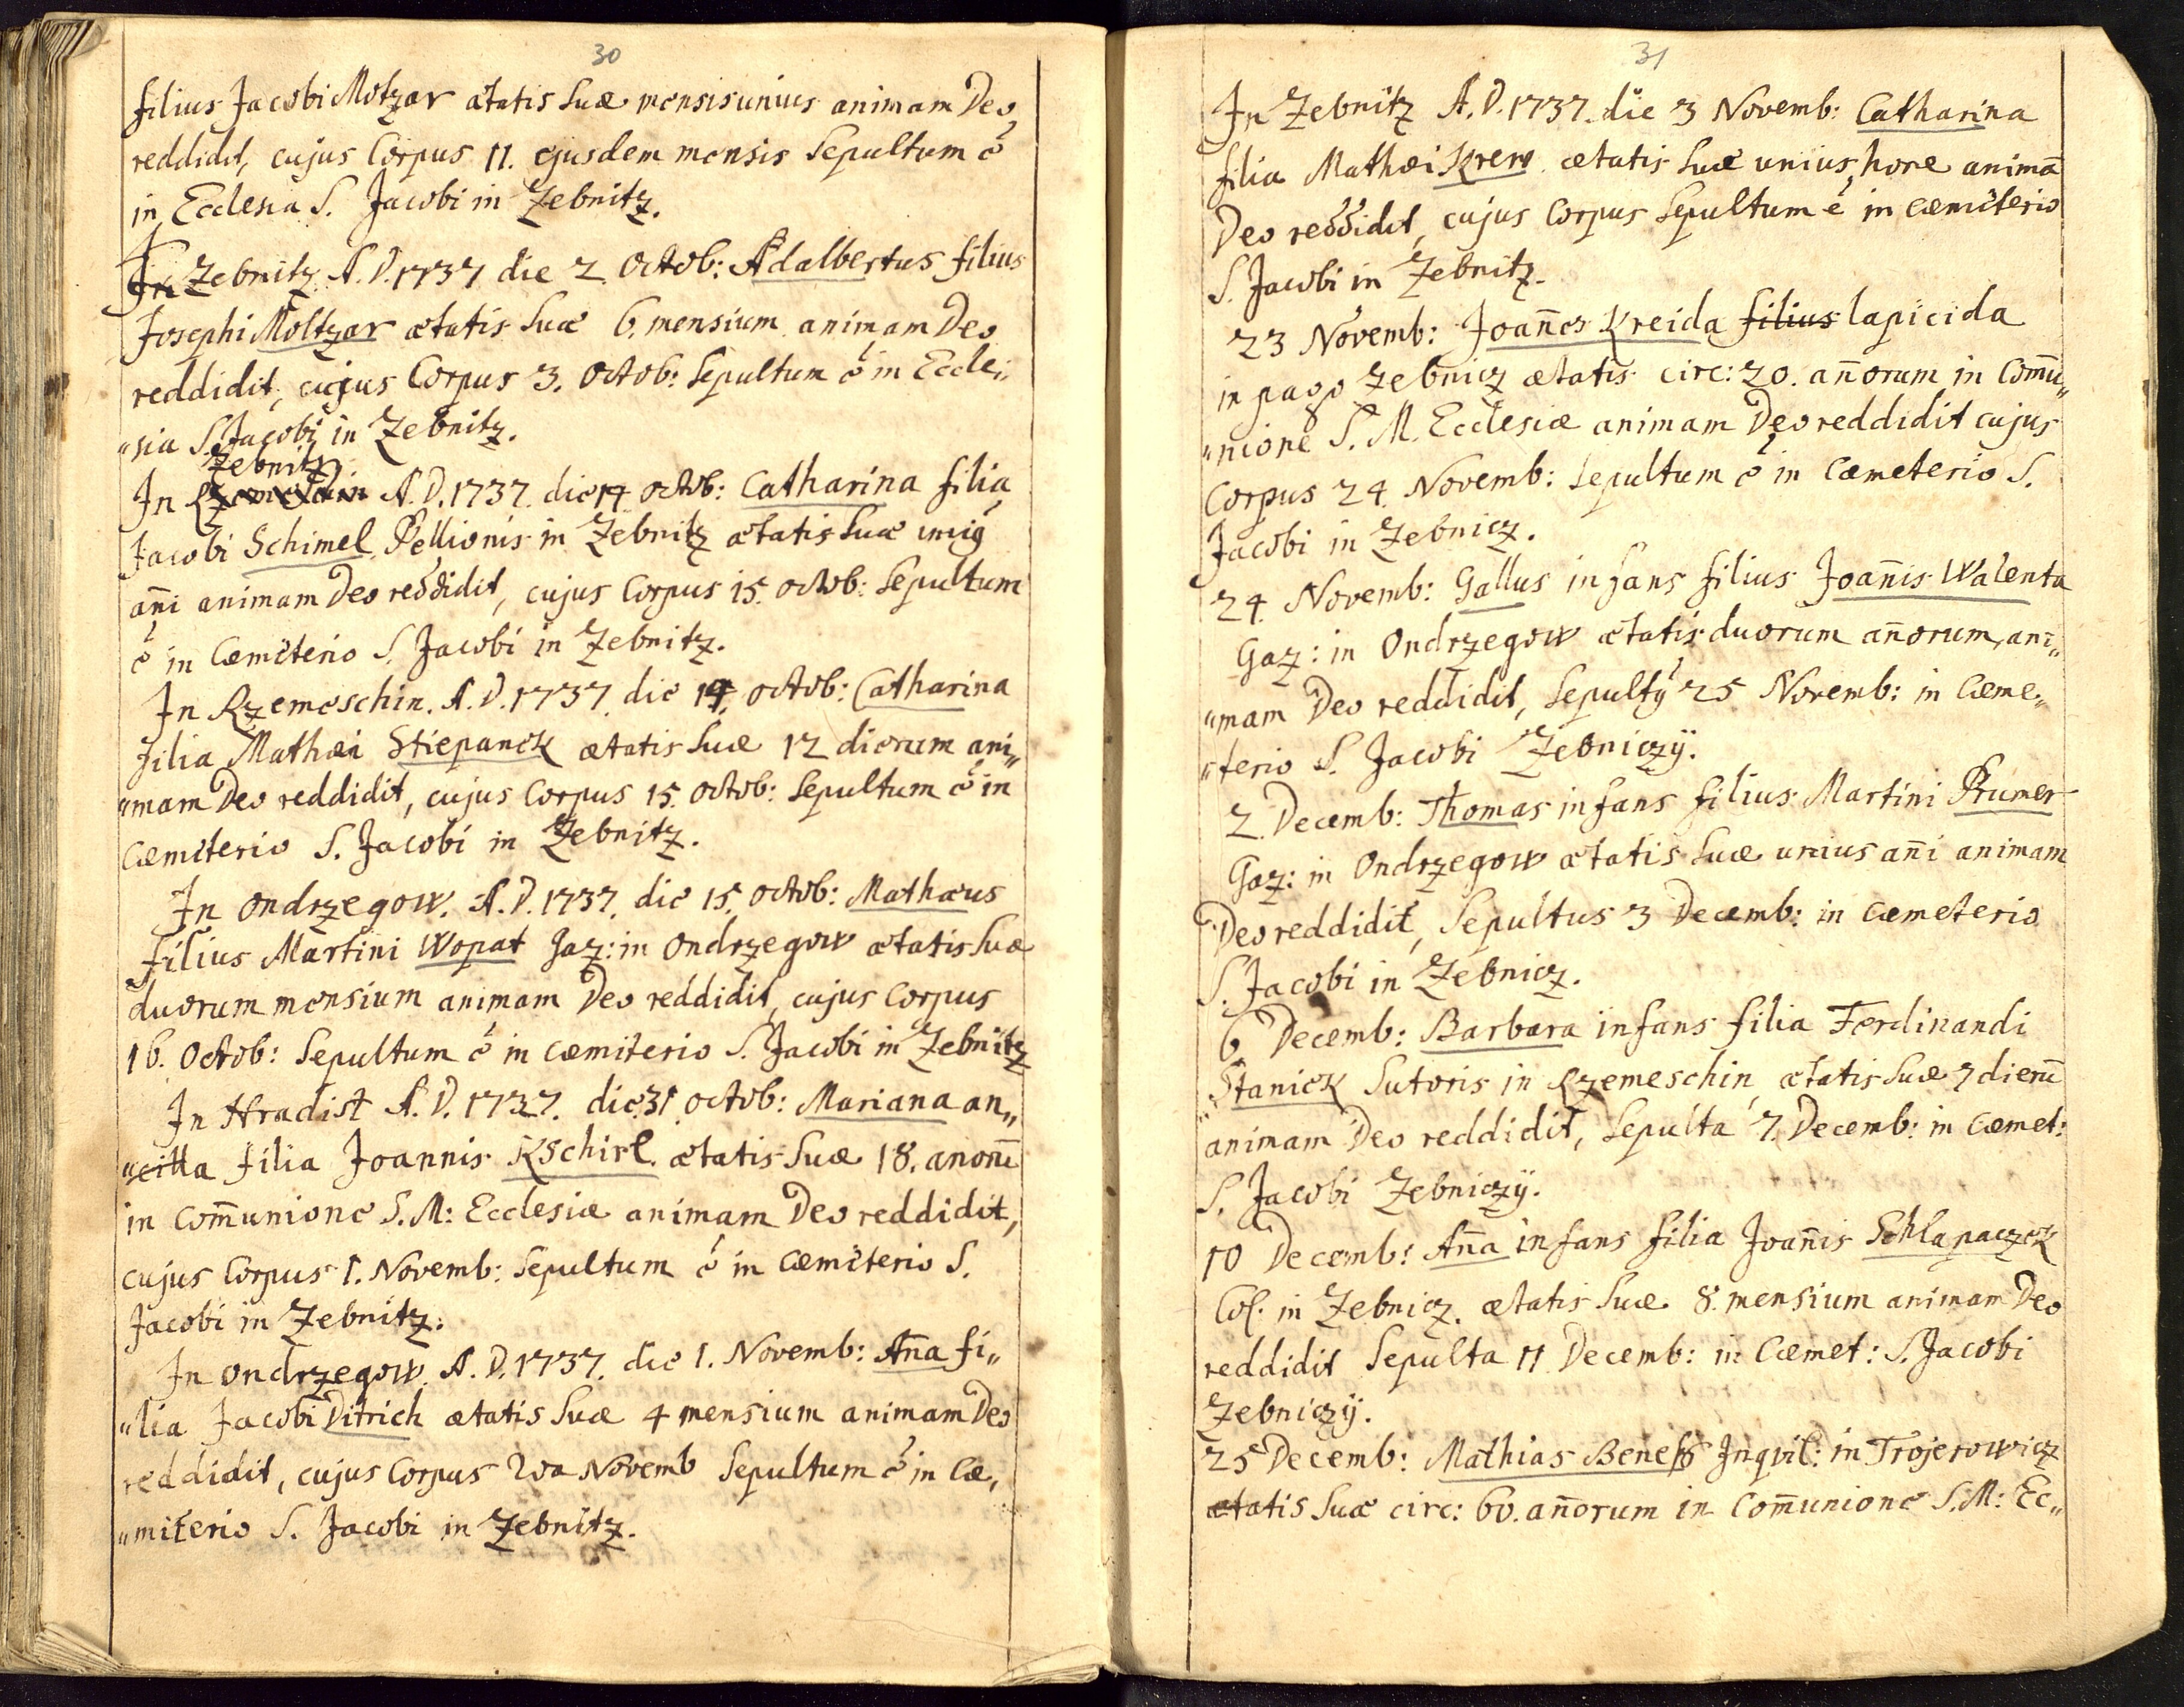 30
filius Jacobi Motzar ætatis suæ mensis unius animam Deo
reddidit, cujus Corpus 11. ejusdem mensis Sepultum ē
in Ecclesia S. Jacobi in Zebnitz.
In Zebnitz A.D. 1737 die 2 Octob: Adalbertus filius
Josephi Moltzar ætatis suæ 6. mensium animam Deo
reddidit, cujus Corpus 3. Octob: Sepultum ē in Eccle„
„sia S. Jacobi in Zebnitz.
Zebnitz
In Rzemeschin A.D. 1737. die 14 octob: Catharina filia
Jacobi Schimel Pellionis in Zebnitz ætatis suæ unig
añi animam Deo reddidit, cujus Corpus 15. octob: Sepultum
ē in Cæmiterio S. Jacobi in Zebnitz.
In Rzemeschin. A.D. 1737. die 14. octob: Catharina
filia Mathæi Stiepanek ætatis suæ 12 dierum ani„
„mam Deo reddidit, cujus Corpus 15. octob: Sepultum ē in
Cæmiterio S. Jacobi in Zebnitz.
In Ondrzegow. A.D. 1737. die 15. octob: Mathæus
filius Martini Wopat Gaz: in Ondrzegow ætatis suæ
duorum mensium animam Deo reddidit, cujus Corpus
16. Octob: Sepultum ē in cæmiterio S. Jacobi in Zebnitz
In Hradist A.D. 1737. die 31 octob: Mariana an„
„cilla filia Joannis Kschirl. ætatis suæ 18. anorū
in Com̄unione S. M: Ecclesiæ animam Deo reddidit,
cujus Corpus 1. Novemb: Sepultum ē in cæmiterio S.
Jacobi in Zebnitz.
In Ondrzegow. A.D. 1737. die 1. Novemb: Añna fi„
„lia Jacobi Ditrich ætatis suæ 4 mensium animam Deo
reddidit, cujus Corpus 2da Novemb Sepultum ē in Cæ„
„miterio S. Jacobi in Zebnitz.
31
In Zebnitz A.D. 1737. die 3 Novemb: Catharina
filia Mathæi Krew ætatis suæ unius horæ animā
Deo reddidit, cujus Corpus Sepultum ē in cæmiterio
S. Jacobi in Zebnitz.
23 Novemb: Joañes Kreida filius lapicida
in pago Zebnicz ætatis circ: 20. añorum in Com̄u„
„nione S. M. Ecclesiæ animam Deo reddidit cujus
Corpus 24 Novemb: Sepultum ē in Cæmeterio S.
Jacobi in Zebnicz.
24. Novemb: Gallus infans filius Joañis Walenta
Gaz: in Ondrzegow ætatis duorum añorum, ani„
„mam Deo reddidit, Sepultg 25 Novemb: in Cæme„
„terio S. Jacobi Zebniczÿ.
2. Decemb: Thomas infans filius Martini Prumer
Gaz: in Ondrzegow ætatis suæ unius añi animam
Deo reddidit, Sepultus 3 Decemb: in Cæmeterio
S. Jacobi in Zebnicz.
6 Decemb: Barbara infans filia Ferdinandi
Stanick Sutoris in Rzemeschin ætatis suæ 7 dierū
animam Deo reddidit, Sepulta 7. Decemb: in Cæmet:
S. Jacobi Zebniczÿ.
10 Decemb: Aña infans filia Joañis Schlapaczek
Col. in Zebnicz. ætatis suæ 8. mensium animam Deo
reddidit Sepulta 11 Decemb: in Cæmet: S. Jacobi
Zebniczÿ.
25 Decemb: Mathias Beneß Inqvil: in Trojerowicz
ætatis suæ circ: 60. añorum in Com̄unione S. M: Ec„